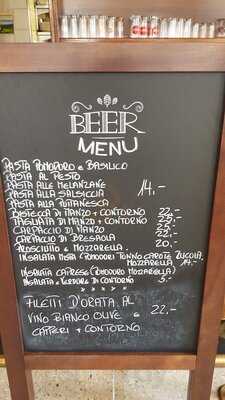 BEER
MENU
PASTA POMODORO e BASILICO
PASTA AL PESTO
PASTA ALLE MELANZANE
PASTA ALLA SALSICCIA 14.-
PASTA ALLA PUTTANESCA
BISTECCA DI MANZO + CONTORNO 22.-
TAGLIATA DI MANZO + CONTORNO
CARPACCIO DI MANZO
CARPACCIO DI BRESAOLA 22.-
PROSCIUTTO e MOZZARELLA 20.-
INSALATA MISTA (POMODORI TONNO CAROTE RUCOLA,
MOZZARELLA 14.-
INSALATA CAPRESE (POMODORO MOZZARELLA)
INSALATA e VERDURE DI CONTORNO 5.-
FILETTI D'ORATA AL
VINO BIANCO OLIVE e 22.-
CAPPERI + CONTORNO